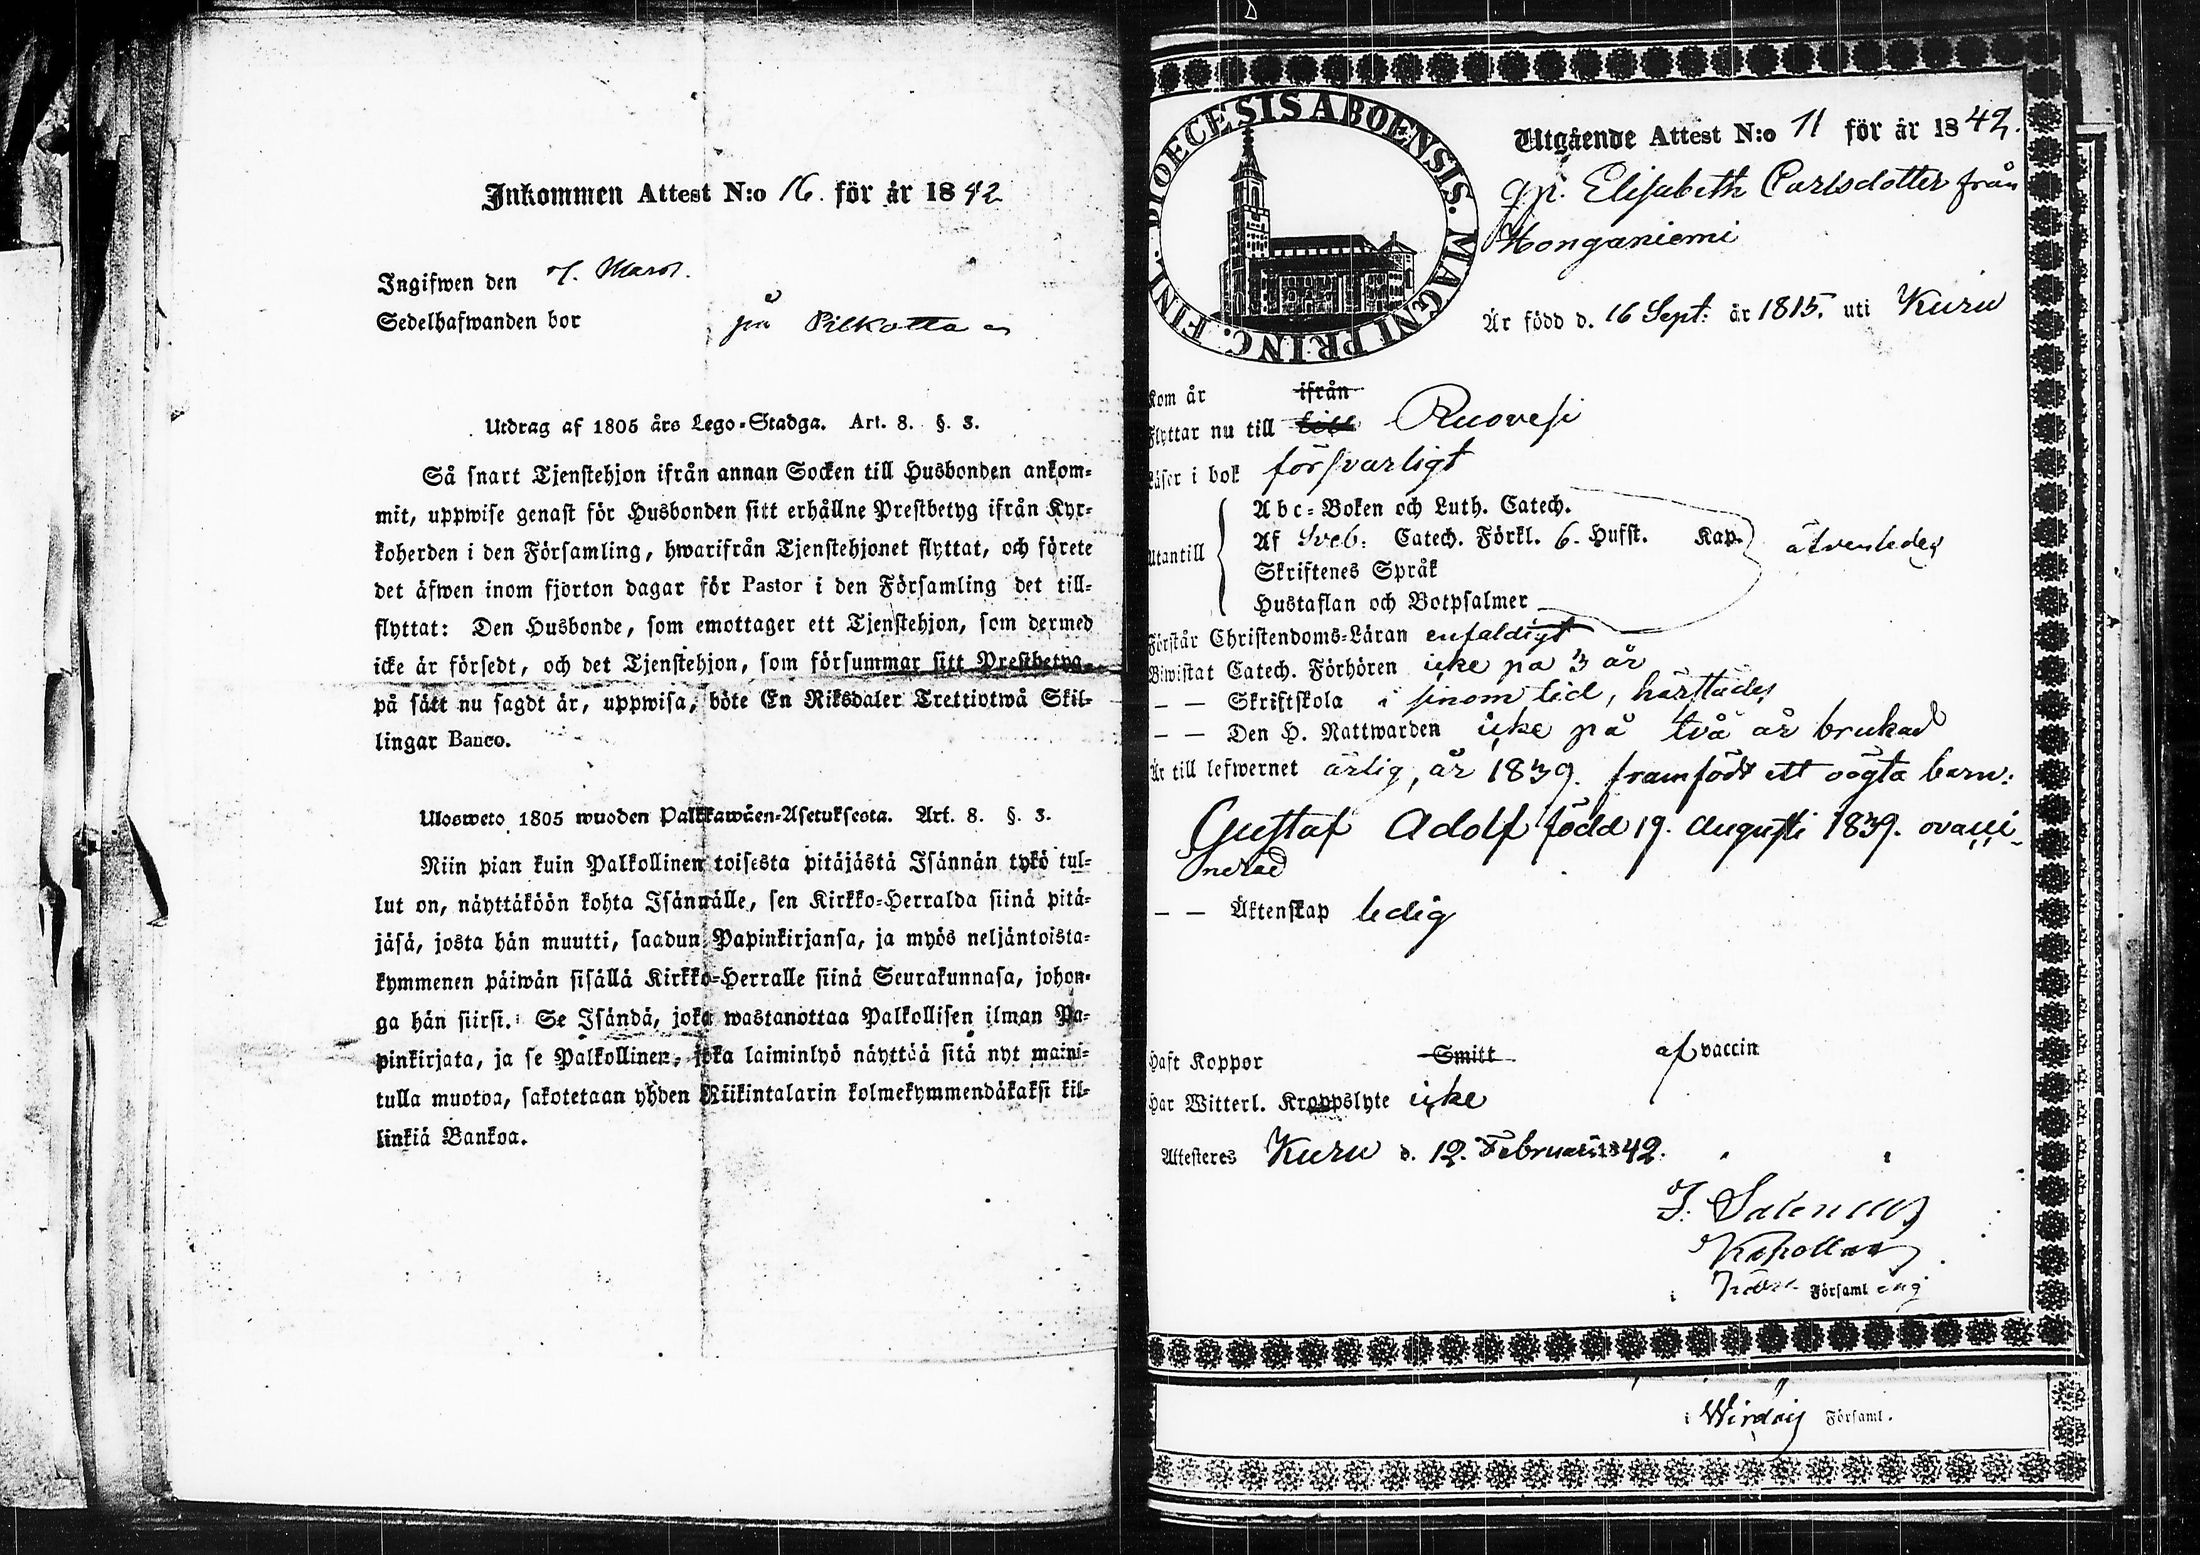 Inkommen Attest N:o 16. för år 1842
Ingifwen den 7. Mars.
Sedelhafwanden bor på Pilkotta
Utdrag af 1805 års Lego-Stadga. Art. 8. §. 3.
Så snart Tjenstehjon ifrån annan Socken till Husbonden ankom-
mit, uppwise genast för Husbonden sitt erhållne Prestbetyg ifrån Kyr-
koherden i den Församling, hwarifrån Tjenstehjonet flyttat, och förete
det äfwen inom fjorton dagar för Pastor i den Församling det till-
flyttat: Den Husbonde, som emottager ett Tjenstehjon, som dermed
icke är försedt, och det Tjenstehjon, som försummar sitt Prestbetyg
på sätt nu sagdt är, uppwisa, böte En Riksdaler Trettiotwå Skil-
lingar Banco.
Ulosweto 1805 wuoden Palkkawäen-Asetuksesta. Art. 8. §. 3.
Niin pian kuin Palkollinen toisesta pitäjästä Isännän tykö tul-
lut on, näyttäköön kohta Isännälle, sen Kirkko-Herralda siinä pitä-
jäsä, josta hän muutti, saadun Papinkirjansa, ja myös neljäntoista-
kymmenen päiwän sisällä Kirkko-Herralle siinä Seurakunnasa, johon-
ga hän siirsi. Se Isändä, joka wastanottaa Palkollisen ilman Pa-
pinkirjata, ja se Palkollinen, joka laiminlyö näyttää sitä nyt maini-
tulla muotoa, sakotetaan yhden Riikintalarin kolmekymmendäkaksi kil-
linkiä Bankoa.
DIOECESIS ABOENSIS. MAGNI PRINC. FINL.
Utgående Attest N:o 11 för år 1842.
qp. Elisabeth Carlsdotter från
Honganiemi
Är född d. 16 Sept. år 1815. uti Kuru
Kom år ifrån
Flyttar nu till till Ruovesi
Läser i bok försvarligt
Utantill
Abc-Boken och Luth. Catech.
Af Sveb. Catech. Förkl. 6. Hufst. Kap.
Skriftenes Språk
Hustaflan och Botpsalmer
äfvenledes
Förstår Christendoms-Läran enfaldigt
Biwistat Catech. Förhören icke på 3 år
— — Skriftskola i sinom tid, härstädes
— — Den H. Nattwarden icke på två år brukad
Är till lefwernet ärlig, år 1839. framfödt ett oägta barn:
Gustaf Adolf född 19. Augusti 1839. ovacci-
nerad
— — Äktenskap ledig
Haft Koppor Smitt af vaccin
Har Witterl. Kroppslyte icke
Attesteres Kuru d. 12. Februarii 1842.
Kapellan
i Församling
i Wirdois Församl.